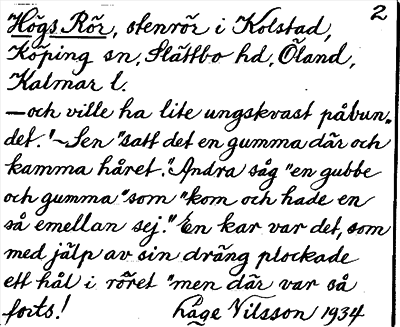 2
Högs Rör, stenrör i Kolstad,
Köping sn, Slättbo hd, Öland,
Kalmar l.
—och ville ha lite ungskvast påbun-
det." — Sen "satt det en gumma där och
kamma håret." Andra såg "en gubbe
och gumma" som "kom och hade en
så emellan sej." En kar var det, som
med jälp av sin dräng plockade
ett hål i röret "men där var så
forts! Låge Nilsson 1934